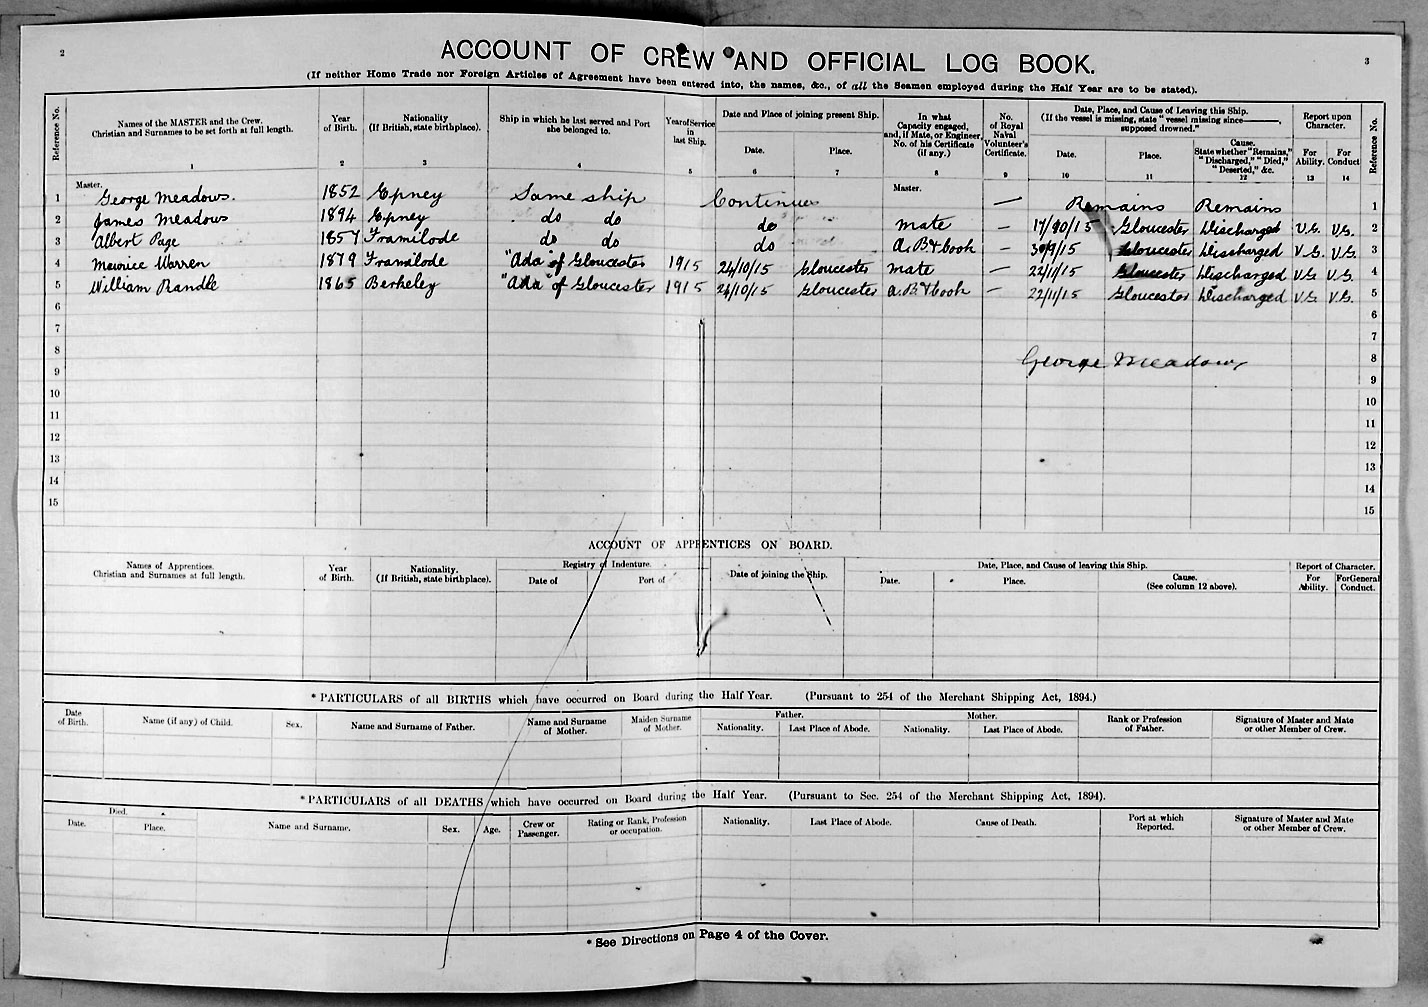 2
3
ACCOUNT OF CREW AND OFFICIAL LOG BOOK.
(If neither Home Trade nor Foreign Articles of Agreement have been entered into, the names, &c., of all the Seamen employed during the Half Year are to be stated).
Reference No. | Names of the MASTER and the Crew. Christian and Surnames to be set forth at full length. | Year of Birth. | Nationality (If British, state birthplace). | Ship in which he last served and Port she belonged to. | Year of Service in last Ship. | Date and Place of joining present Ship. Date. Place. | In what Capacity engaged, and, if Mate, or Engineer, No. of his Certificate (if any.) | No. of Royal Naval Volunteer's Certificate. | Date, Place, and Cause of Leaving this Ship. (If the vessel is missing, state "vessel missing since———, supposed drowned." Date. Place. Cause. State whether "Remains," "Discharged," "Died," "Deserted," &c. | Report upon Character. For Ability. For Conduct | Reference No.
1 2 3 4 5 6 7 8 9 10 11 12 13 14
Master. Master.
1 George Meadows. 1852 Epney Same ship Continues — Remains Remains 1
2 James Meadows 1894 Epney do do do mate — 17/10/15 Gloucester Discharged V.G. V.G. 2
3 Albert Page 1857 Framilode do do do A.B & Cook — 30/9/15 Gloucester Discharged V.G. V.G. 3
4 Maurice Warren 1879 Framilode "Ada" of Gloucester 1915 24/10/15 Gloucester mate — 22/11/15 Gloucester Discharged V.G V.G. 4
5 William Randle 1865 Berkeley "Ada" of Gloucester 1915 24/10/15 Gloucester A.B & Cook — 22/11/15 Gloucester Discharged V.G V.G. 5
6 6
7 7
8 George Meadows 8
9 9
10 10
11 11
12 12
13 13
14 14
15 15
ACCOUNT OF APPRENTICES ON BOARD.
Names of Apprentices. Christian and Surnames at full length. | Year of Birth. | Nationality. (If British, state birthplace). | Registry of Indenture. Date of Port of | Date of joining the Ship. | Date, Place, and Cause of leaving this Ship. Date. Place. Cause. (See column 12 above). | Report of Character. For Ability. For General Conduct.
* PARTICULARS of all BIRTHS which have occurred on Board during the Half Year. (Pursuant to 254 of the Merchant Shipping Act, 1894.)
Date of Birth. | Name (if any) of Child. | Sex. | Name and Surname of Father. | Name and Surname of Mother. | Maiden Surname of Mother. | Father. Nationality. Last Place of Abode. | Mother. Nationality. Last Place of Abode. | Rank or Profession of Father. | Signature of Master and Mate or other Member of Crew.
* PARTICULARS of all DEATHS which have occurred on Board during the Half Year. (Pursuant to Sec. 254 of the Merchant Shipping Act, 1894).
Died. Date. Place. | Name and Surname. | Sex. | Age. | Crew or Passenger. | Rating or Rank, Profession or occupation. | Nationality. | Last Place of Abode. | Cause of Death. | Port at which Reported. | Signature of Master and Mate or other Member of Crew.
* See Directions on Page 4 of the Cover.